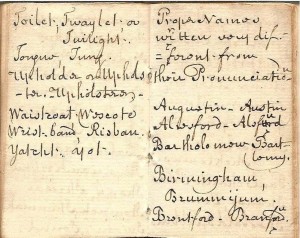 Toilet, Twaylet or
Twilight.
Tongue, Tung.
Upholder or Uphols-
-ter. Upholsterer.
Waistcoat, Wescote
Wrist-band Risban.
Yatcht, Yot.
Proper Names
written very dif-
=ferent from
their Pronunciation
Augustin - Austin
Alresford - Alsford
Bartholomew Bart-
lomy.
Birmingham,
Brummijum.
Brentford - Branford.